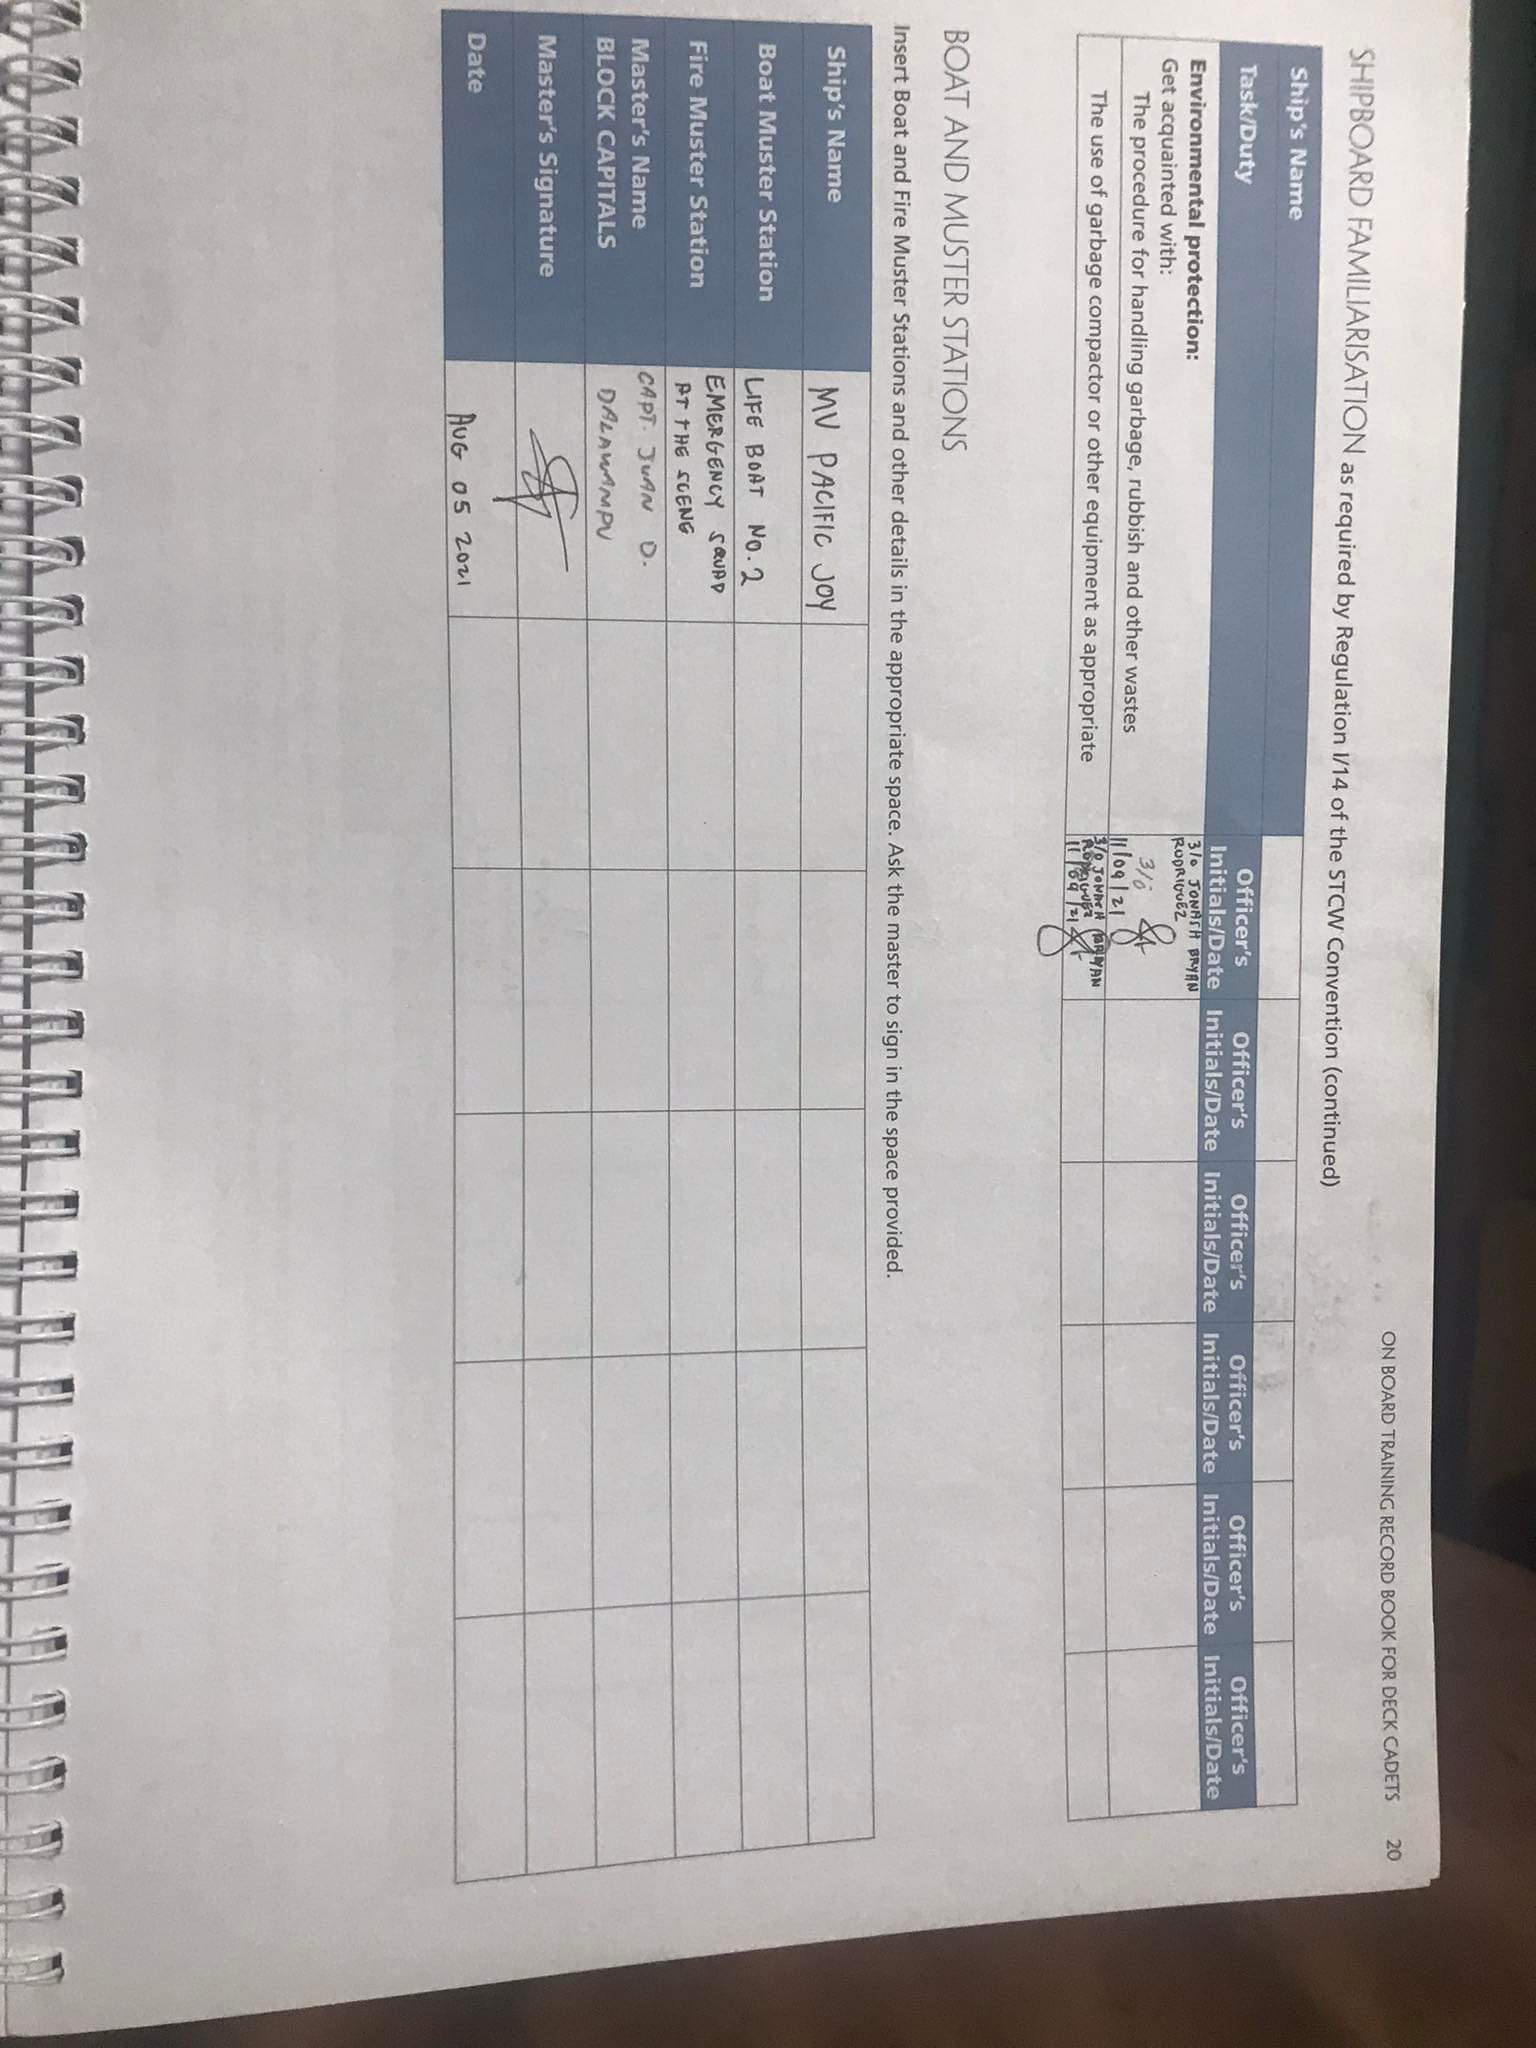 ON BOARD TRAINING RECORD BOOK FOR DECK CADETS 20
SHIPBOARD FAMILIARISATION as required by Regulation I/14 of the STCW Convention (continued)
Ship's Name
Task/Duty
Officer's Initials/Date
Officer's Initials/Date
Officer's Initials/Date
Officer's Initials/Date
Officer's Initials/Date
Officer's Initials/Date
Environmental protection:
Get acquainted with:
The procedure for handling garbage, rubbish and other wastes
3/0 JONASH BRYAN
RODRIGUEZ
3/0
11/09/21
The use of garbage compactor or other equipment as appropriate
3/0 JONASH BRYAN
RODRIGUEZ
11/09/21
BOAT AND MUSTER STATIONS
Insert Boat and Fire Muster Stations and other details in the appropriate space. Ask the master to sign in the space provided.
Ship's Name
MV PACIFIC JOY
Boat Muster Station
LIFE BOAT NO.2
Fire Muster Station
EMERGENCY SQUAD
AT THE SCENG
Master's Name
BLOCK CAPITALS
CAPT. JUAN D.
DALAWAMPU
Master's Signature
Date
AUG 05 2021